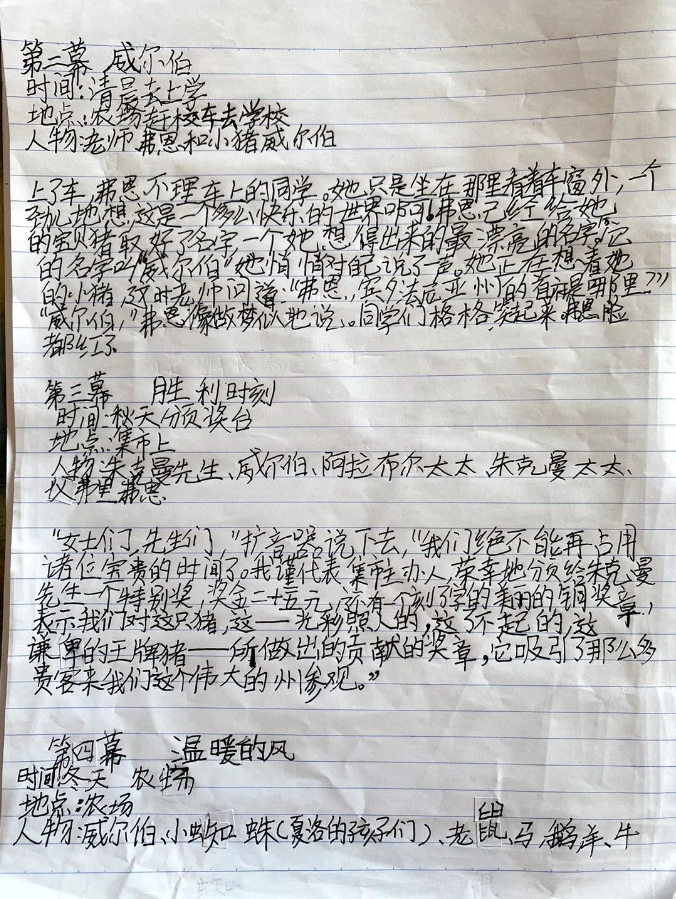 第二幕 威尔伯
时间:清晨去上学
地点:农场赶校车去学校
人物:老师、弗恩和小猪威尔伯
上了车,弗恩不理车上的同学。她只是坐在那里看着车窗外,一个
劲儿地想,这是一个多么快乐的世界啊可。弗恩已经给她
的宝贝猪取好了名字一个她想得出来的最漂亮的名字。它
的名字叫“威尔伯”她悄悄对自己说了声。她正在想着她
的小猪,这时老师问道:“弗恩,宾夕法尼亚州的首府是哪里?”
“威尔伯,”弗恩像做梦似地说。同学们格格笑起来。弗恩脸
都红了
第三幕 胜利时刻
时间:秋天颁奖台
地点:集市上
人物:朱克曼先生、威尔伯、阿拉布尔太太、朱克曼太太、
坟弗里弗恩
“女士们,先生们”扩音器说下去,“我们绝不能再占用
诸位宝贵的时间了。我谨代表集市主办人,荣幸地颁给朱克曼
先生一个特别奖,奖金二十五元,还有一个刻了字的美丽的铜奖章,
表示我们对这只猪,这——光彩照人的,这了不起的,这
谦卑的王牌猪——所做出的贡献的奖章,它吸引了那么多
贵客来我们这个伟大的州参观。”
第四幕 温暖的风
时间:冬天 农场
地点:农场
人物:威尔伯、小蜘蛛(夏洛的孩子们)、老鼠、马、鹅、羊、牛